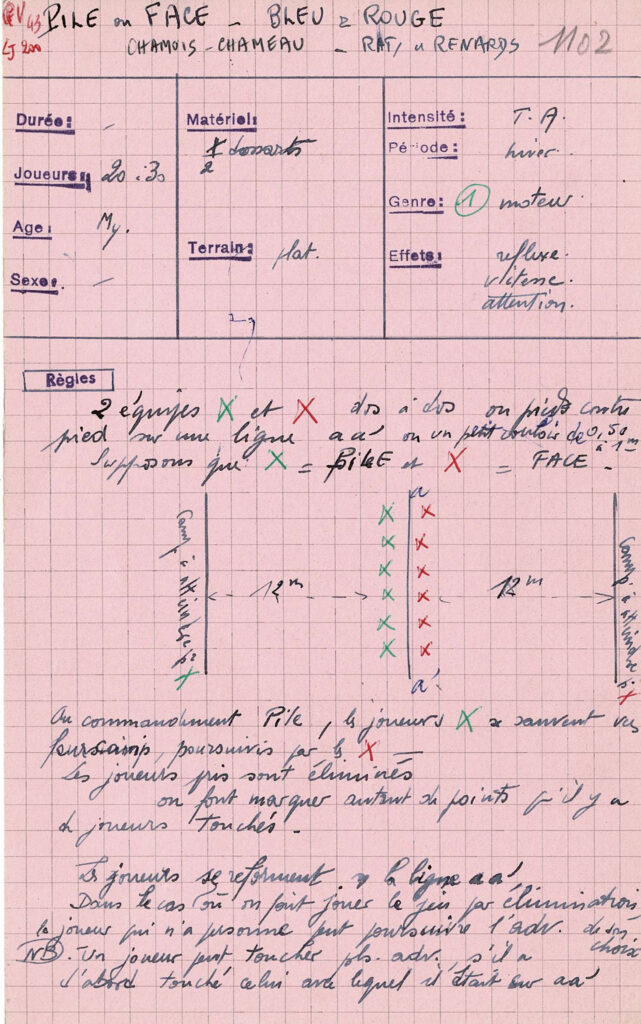 PILE ou FACE - BLEU & ROUGE
LJ 200
CHAMOIS - CHAMEAU - RATS & RENARDS 1102
Durée: -
Joueurs: 20 à 30
Age: My.
Sexe: -
Matériel:
dossards
2
Terrain: plat.
Intensité: T.A.
Période: hiver.
Genre: 1 moteur
Effets: réflexe.
vitesse.
attention.
Règles
2 équipes X et X dos à dos ou pieds contre
pied sur une ligne aa' ou un petit couloir de 0,50
à 1m
Supposons que X = PILE et X = FACE -
a
Camp à atteindre pr X
12m
12m
Camp à atteindre pr X
a'
Au commandement Pile, les joueurs X se sauvent vers
leurs camp, poursuivis par les X -
Les joueurs pris sont éliminés
ou font marquer autant de points qu'il y a
de joueurs touchés -
Les joueurs se reforment la ligne aa'
Dans le cas où on fait jouer le jeu par élimination
le joueur qui n'a personne peut poursuivre l'adv. de son
choix
NB. Un joueur peut toucher pls. adv., s'il a
d'abord touché celui avec lequel il était sur aa'